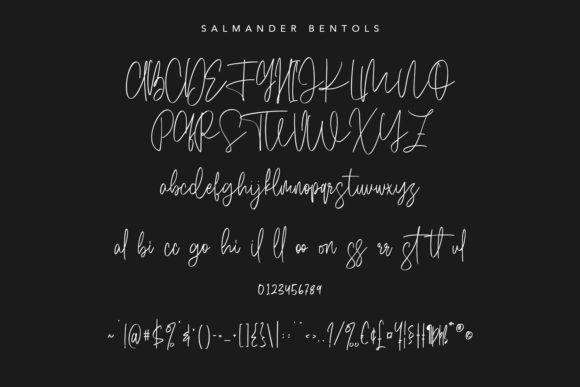 SALMANDER BENTOLS
ABCDEFGHIJKLMNO
PQRSTUVWXYZ
abcdefghijklmnopqrstuvwxyz
al bi cc go hi il ll oo on ss rr st tt ul
0123456789
~ ` | @ # $ % ^ & * ( ) - = _ + [ ] { } \ | ; : ' " < > , . ? / % € ¢ £ ¤ ¥